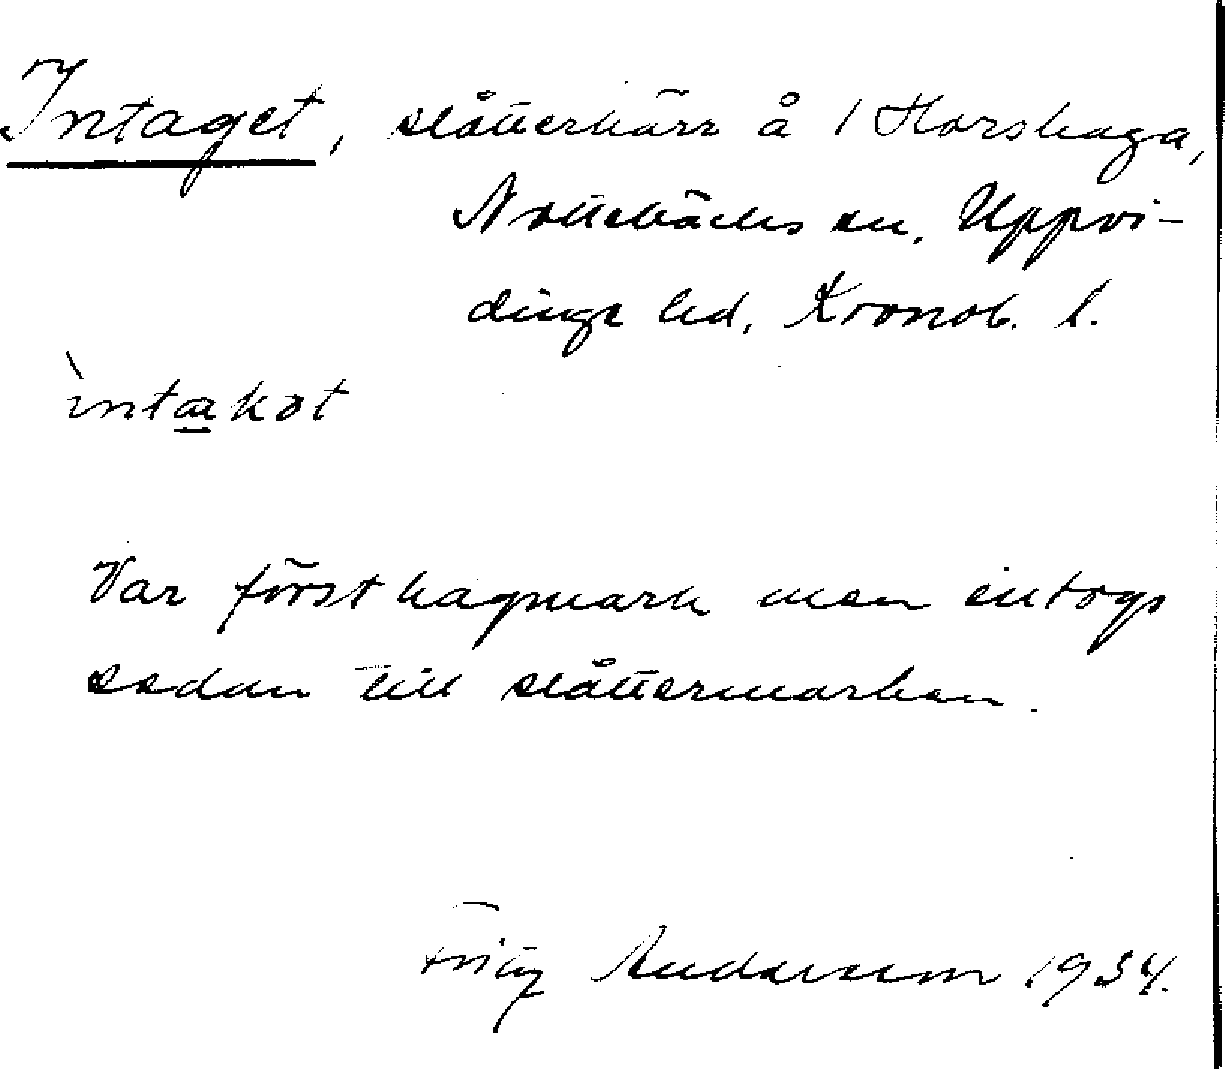 Intaget, slåtterkärr å 1 Horshaga,
Nottebäcks sn, Uppvi-
dinge hd, Kronob. l.
ìntakot
Var först hagmark men intogs
sedan till slåttermarken.
Fritz Andersson 1934.